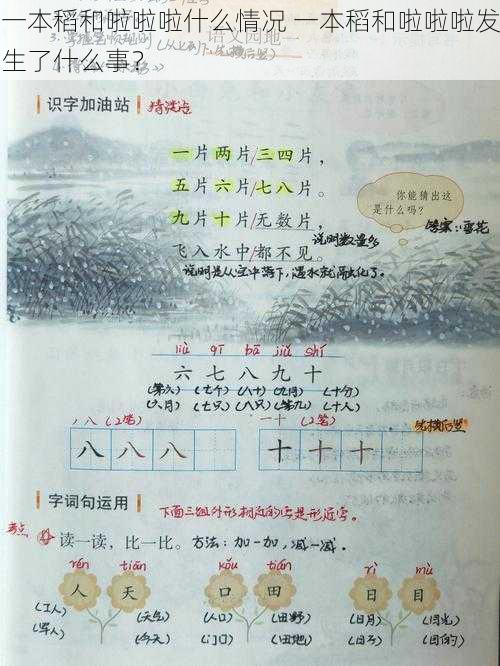 一本稻和啦啦啦什么情况 一本稻和啦啦啦发
生了什么事?
语文园地一
识字加油站
一片两片/三四片，
五片六片/七八片。
九片十片/无数片，
飞入水中/都不见。
你能猜出这
是什么吗?
答案:雪花
说明数量多
说明是从空中落下,遇水就融化了。
liù qī bā jiǔ shí
六 七 八 九 十
(第六) (七个) (八十) (九月) (十分)
(六月) (七只) (八只) (第九) (十人)
ノ 八 (2笔)
一 十 (2笔)
先横后竖
八 八 八
十 十 十
字词句运用
下面三组外形相近的字是形近字。
考点
读一读，比一比。
方法:加一加,减一减。
rén tiān kǒu tián rì mù
人 天 口 田 日 目
(工人) (天气) (人口) (田野) (日月) (目光)
(军人) (今天) (门口) (田地) (日子) (目的)